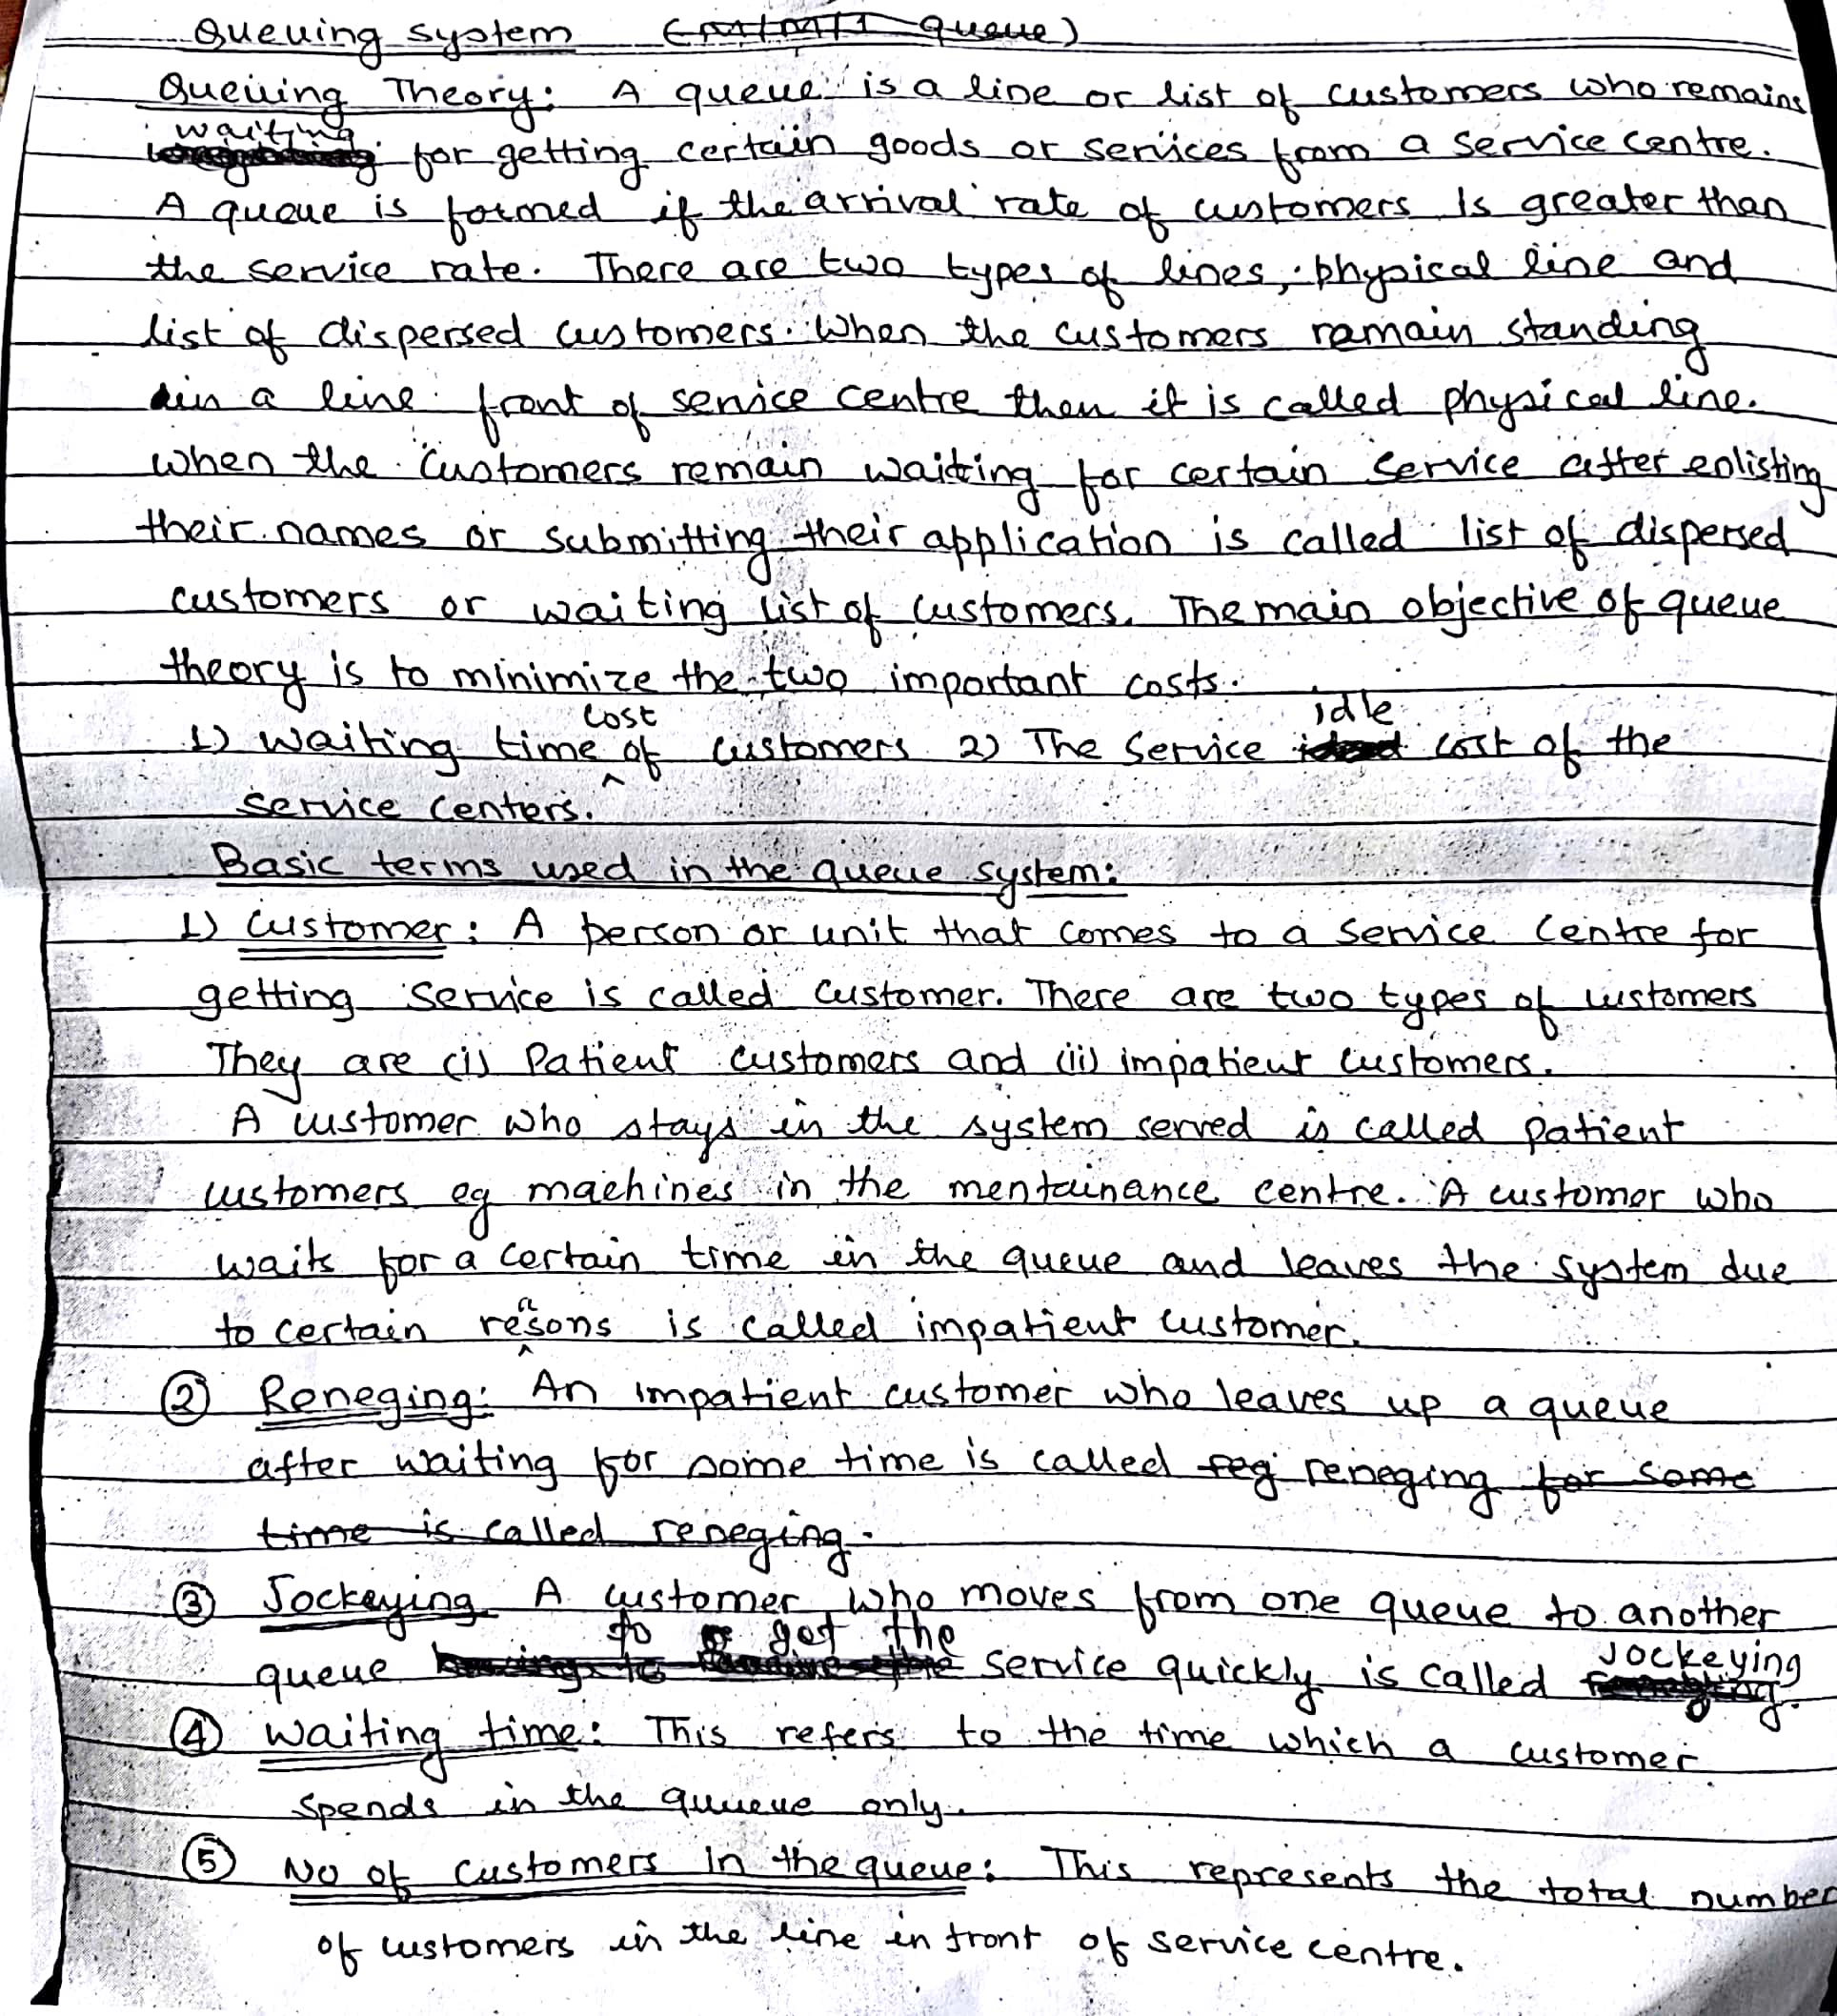 Queuing system ( queue)
Queuing Theory: A queue is a line or list of customers who remains
waiting for getting certain goods or services from a service centre.
A queue is formed if the arrival rate of customers is greater than
the service rate. There are two types of lines, physical line and
list of dispersed customers. When the customers remain standing
in a line front of service centre then it is called physical line.
when the customers remain waiting for certain service after enlisting
their names or submitting their application is called list of dispersed
customers or waiting list of customers. The main objective of queue
theory is to minimize the two important costs.
1) Waiting time cost of customers 2) The service idle cost of the
service centers.
Basic terms used in the queue system:
1) Customer: A person or unit that comes to a service centre for
getting service is called customer. There are two types of customers
They are (i) Patient customers and (ii) impatient customers.
A customer who stays in the system served is called patient
customers eg machines in the mentainance centre. A customer who
waits for a certain time in the queue and leaves the system due
to certain reasons is called impatient customer.
② Reneging: An impatient customer who leaves up a queue
after waiting for some time is called reg reneging for some
time is called reneging.
③ Jockeying A customer who moves from one queue to another
queue to get the service quickly is called Jockeying
④ Waiting time: This refers to the time which a customer
spends in the quueue only.
⑤ No of customers in the queue: This represents the total number
of customers in the line in front of service centre.